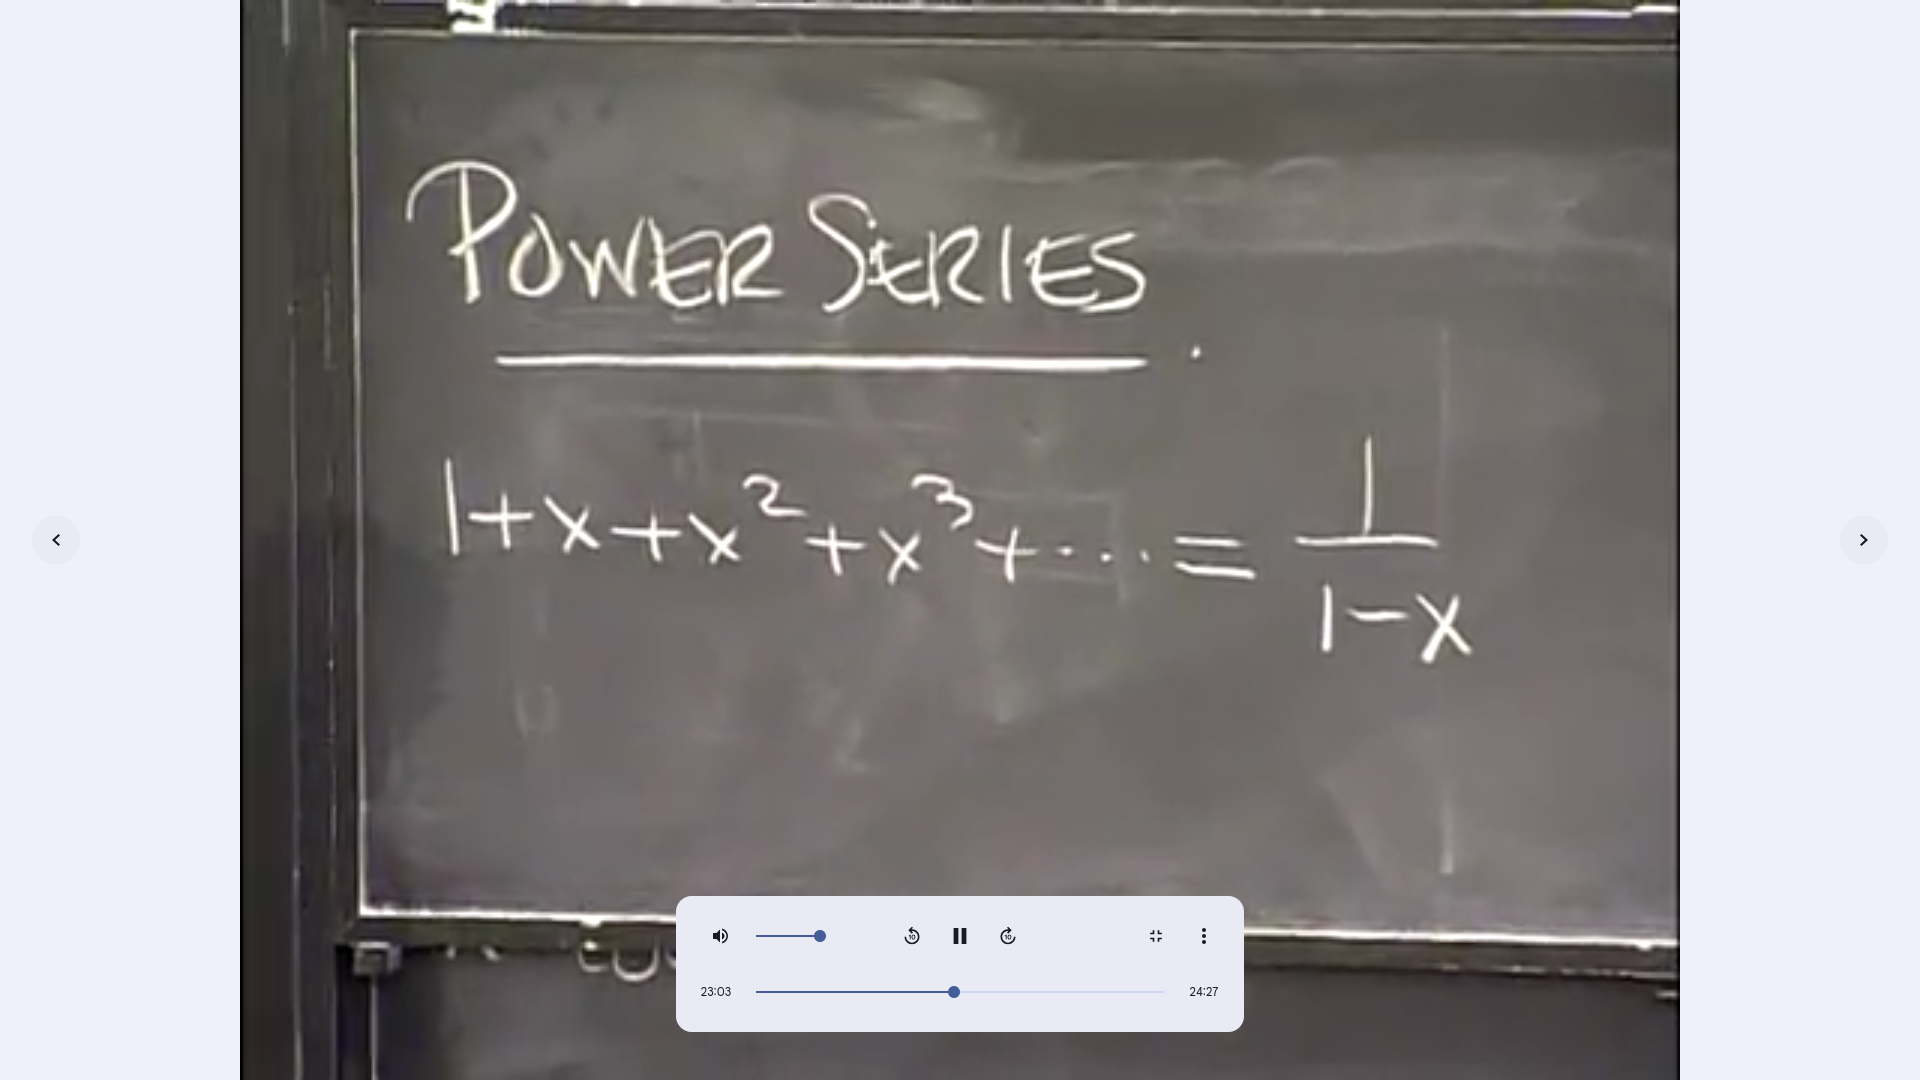 POWER SERIES
1+x+x²+x³+··· = 1/(1-x)
23:03
24:27